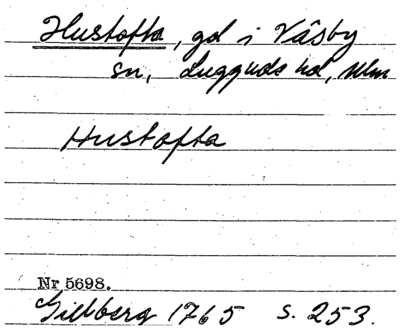 Hustofta, gd i Väsby
sn, Luggude hd, Mlm
Hustofta
Nr 5698.
Gillberg 1765 s. 253.